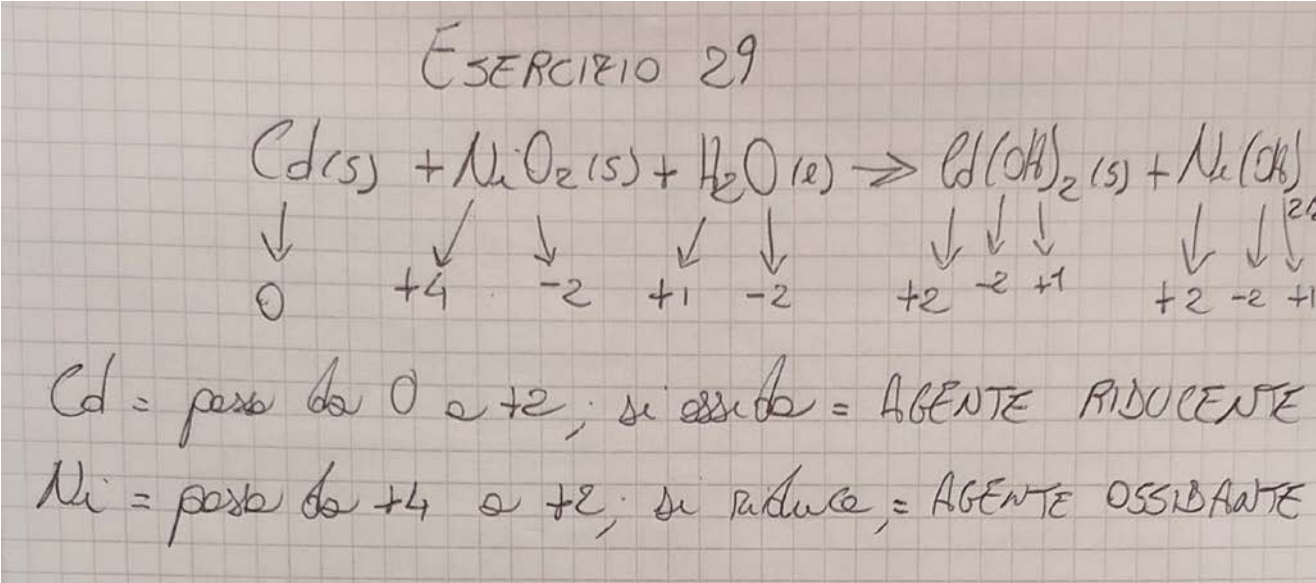 ESERCIZIO 29
Cd(s) + NiO₂(s) + H₂O(l) → Cd(OH)₂(s) + Ni(OH)₂
0 +4 -2 +1 -2 +2 -2 +1 +2 -2 +1
Cd = passa da 0 a +2, si ossida = AGENTE RIDUCENTE
Ni = passa da +4 a +2, si riduce, = AGENTE OSSIDANTE